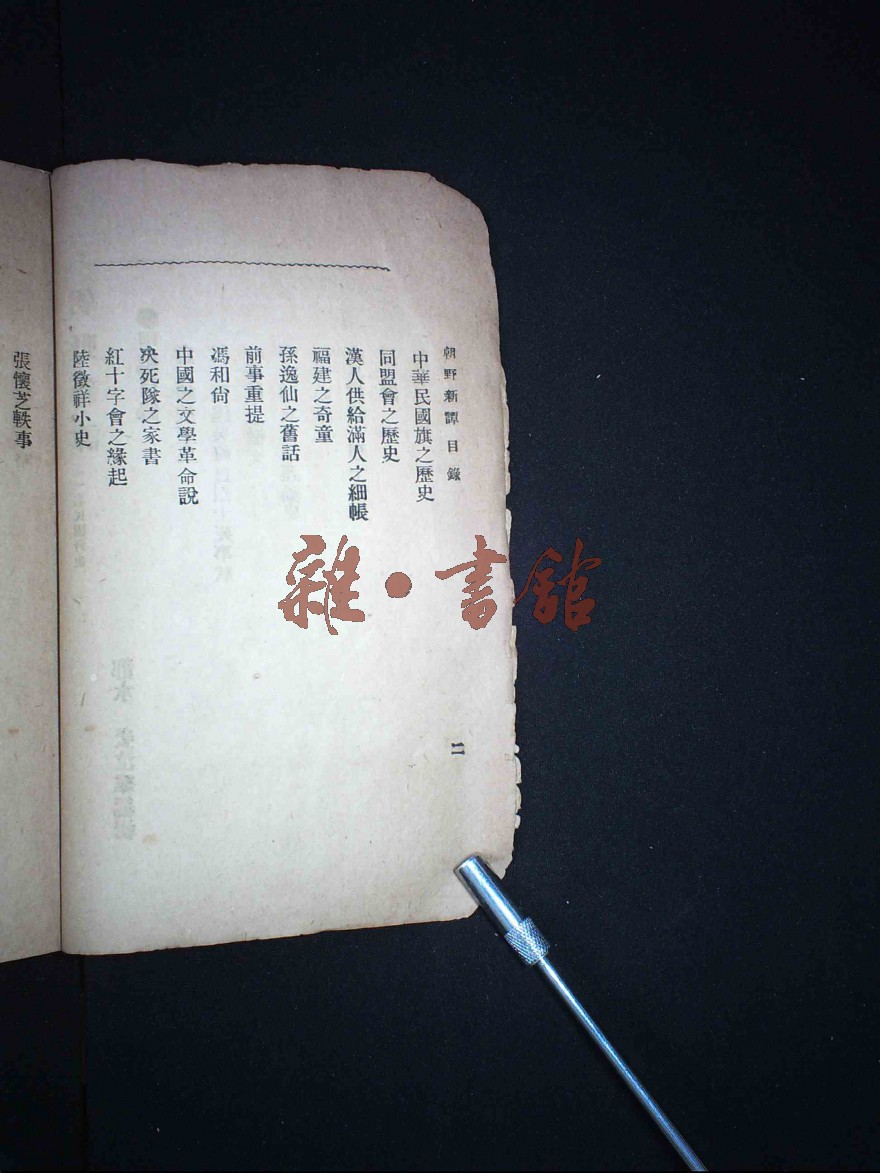 朝野新譚 目錄
二
中華民國旗之歷史
同盟會之歷史
漢人供給滿人之細帳
福建之奇童
孫逸仙之舊話
前事重提
馮和尙
中國之文學革命說
决死隊之家書
紅十字會之緣起
陸徵祥小史
張懷芝軼事
雜·書館